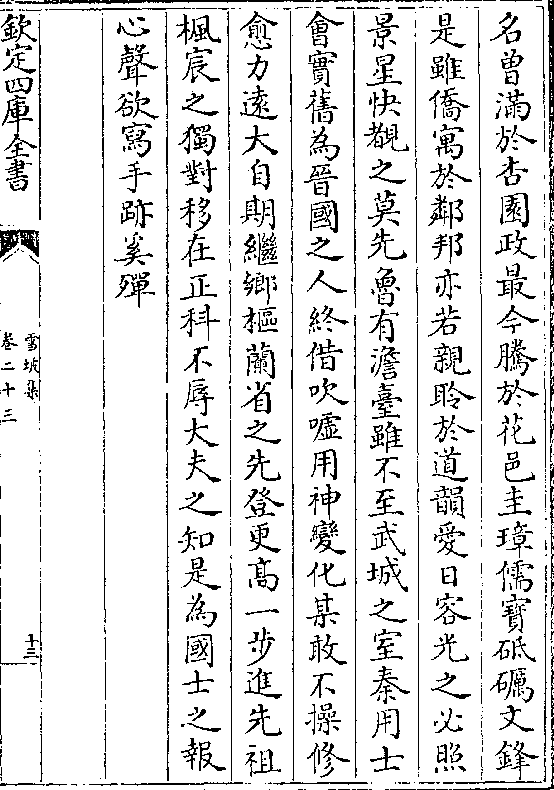 名曽滿於杏園政最今騰於花邑圭璋儒寳砥礪文鋒
是雖僑寓於鄰邦亦若親聆於道韻愛日容光之必照
景星快覩之莫先魯有澹臺雖不至武城之室秦用士
會實舊為晉國之人終借吹噓用神變化某敢不操修
愈力遠大自期繼鄉樞蘭省之先登更髙一步進先祖
楓宸之獨對移在正科不辱大夫之知是為國士之報
心聲欲寫手跡奚殫
欽定四庫全書
雪坡集
卷二十三
十三